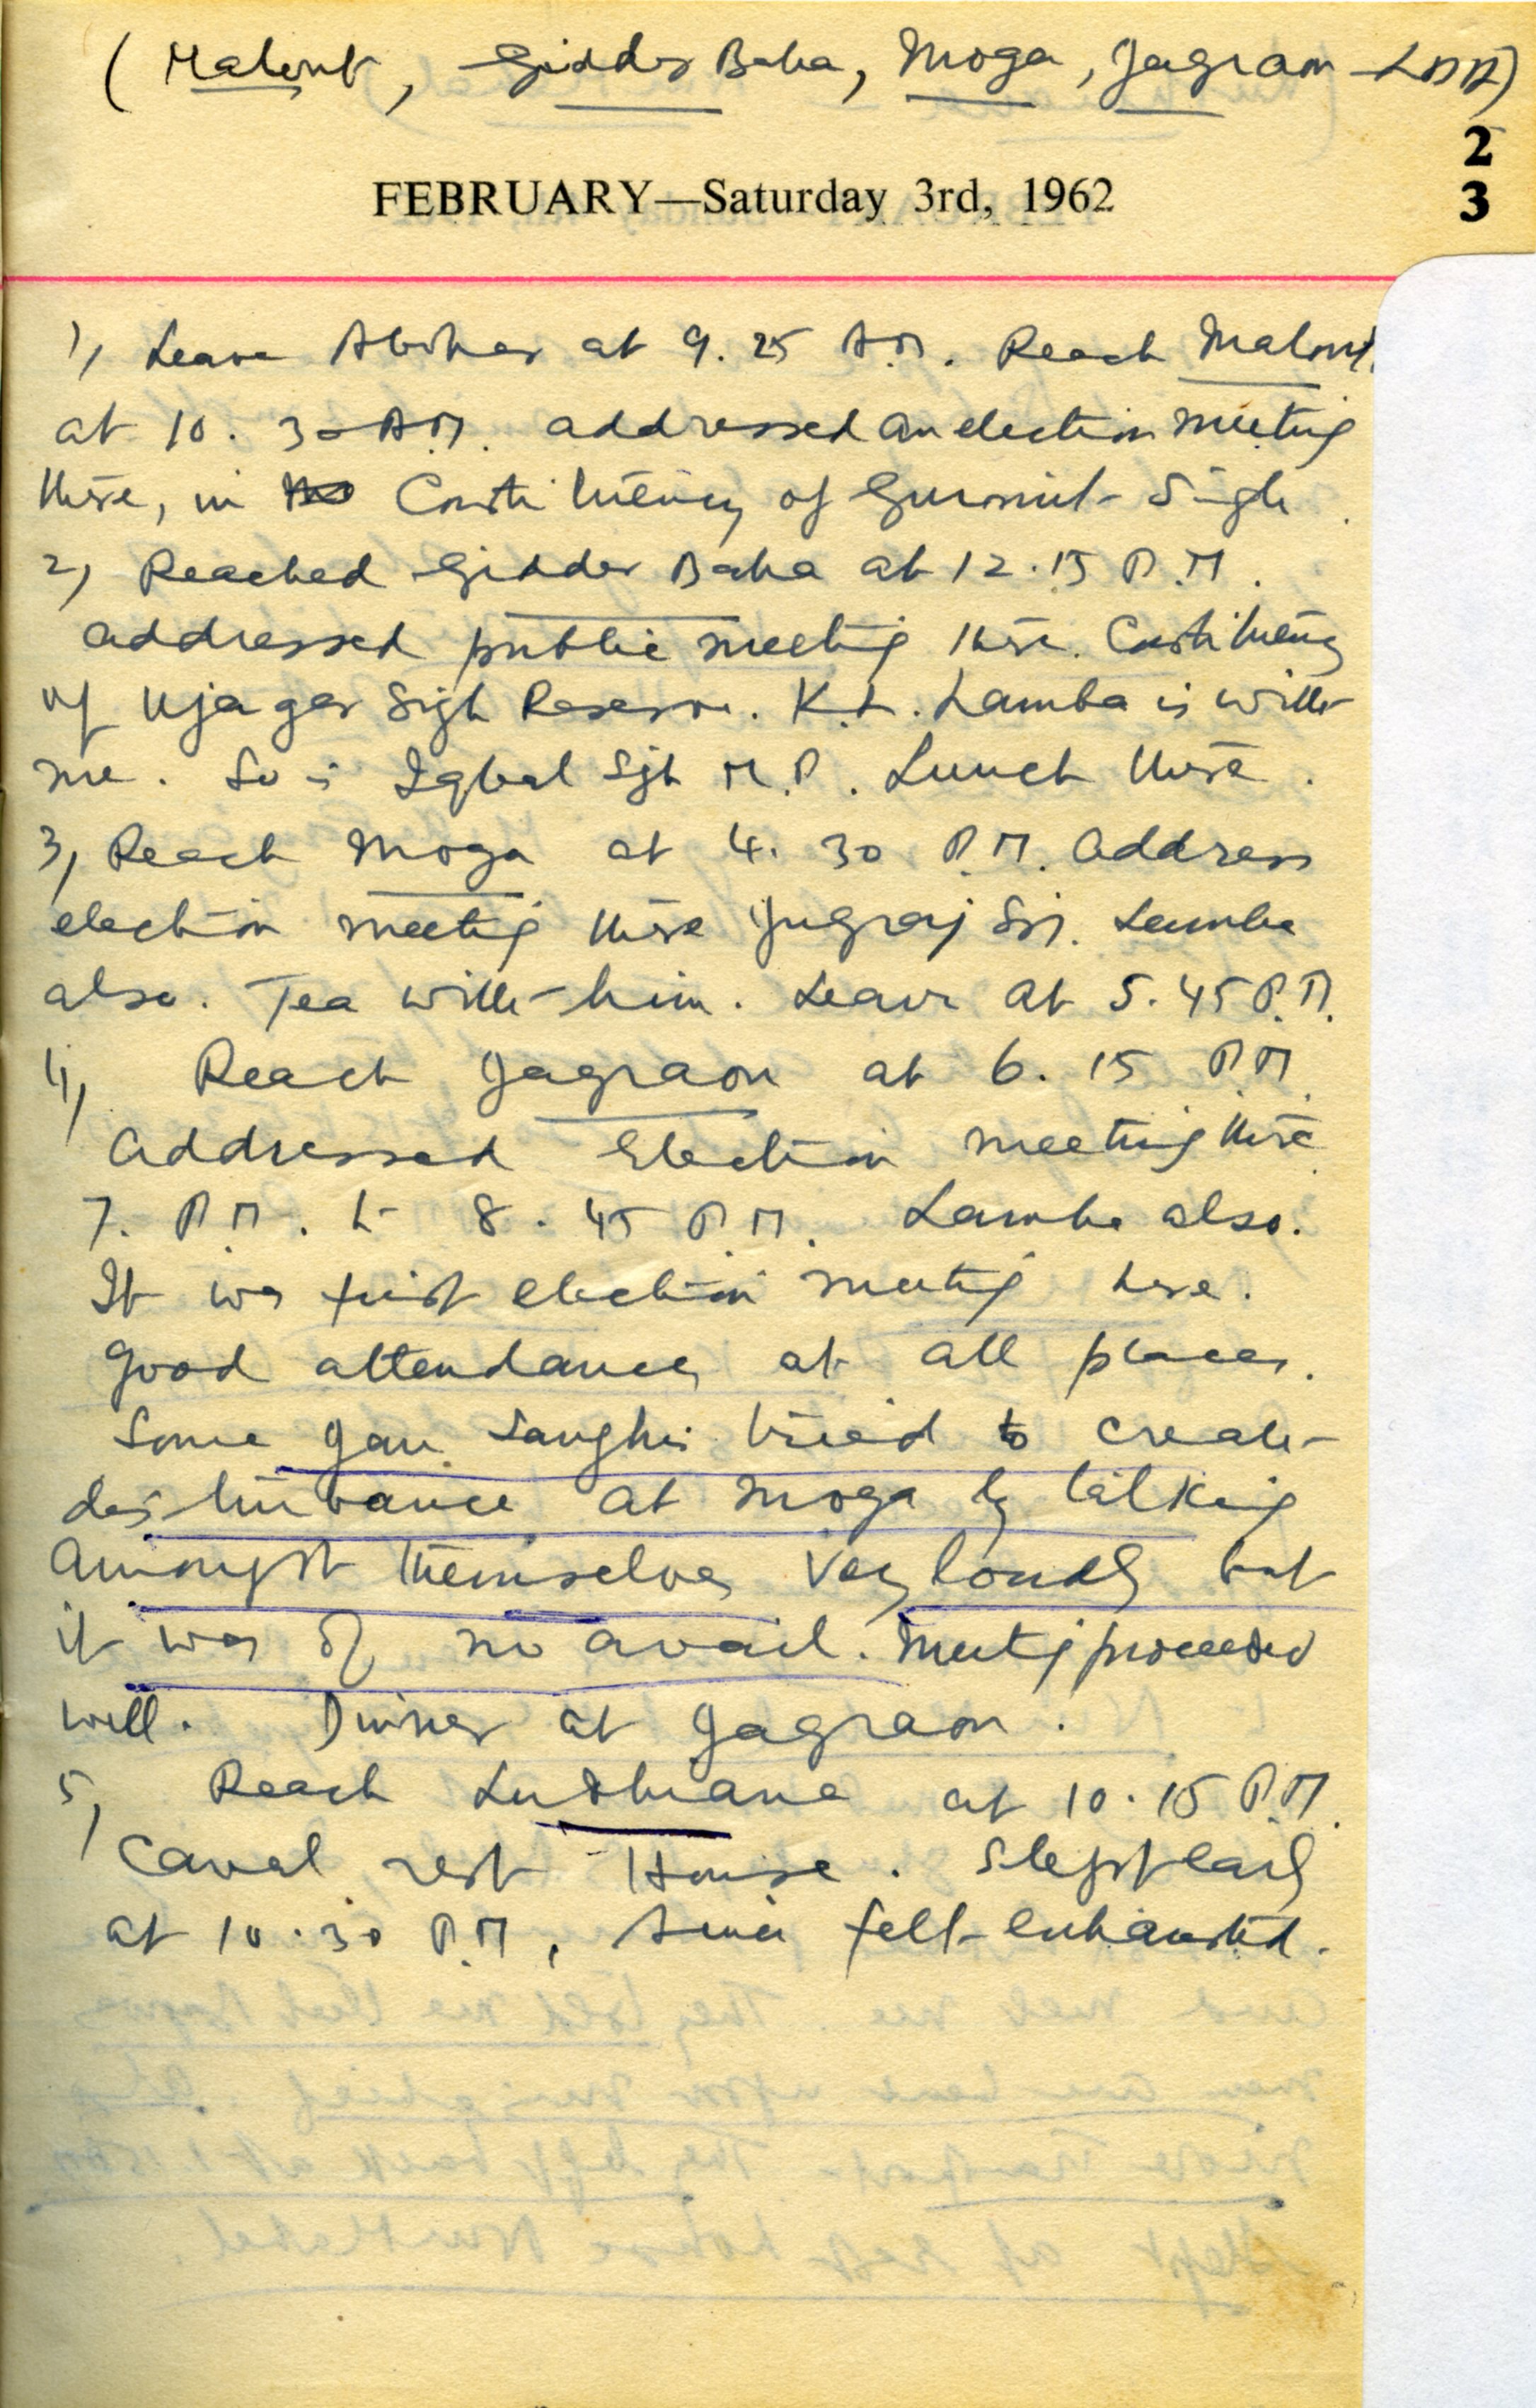 (Malout, Gidder Baha, Moga, Jagraon - LDH)
2
3
FEBRUARY—Saturday 3rd, 1962
1, Leave Abohar at 9.25 A.M. Reach Malout
at 10.30 A.M. addressed an election meeting
there, in the Constituency of Gurmit Singh.
2, Reached Gidder Baha at 12.15 P.M.
addressed public meeting there. Constituency
of Ujagar Sigh Reserve. K.L. Lamba is with
me. So is Iqbal Sgh M.P. Lunch there.
3, Reach Moga at 4.30 P.M. Address
election meeting there Jugraj Lamba
also. Tea with him. Leave at 5.45 P.M.
4, Reach Jagraon at 6.15 P.M.
Addressed Election meeting there
7. P.M. to 8.45 P.M. Lamba also.
It was first election meeting here.
Good attendance at all places.
Some Jan Sanghis tried to create
disturbance at Moga by talking
amongst themselves very loudly but
it was of no avail. Meeting proceeded
well. Dinner at Jagraon.
5, Reach Ludhiana at 10.15 P.M.
Canal rest House. Slept early
at 10.30 P.M, felt exhausted.